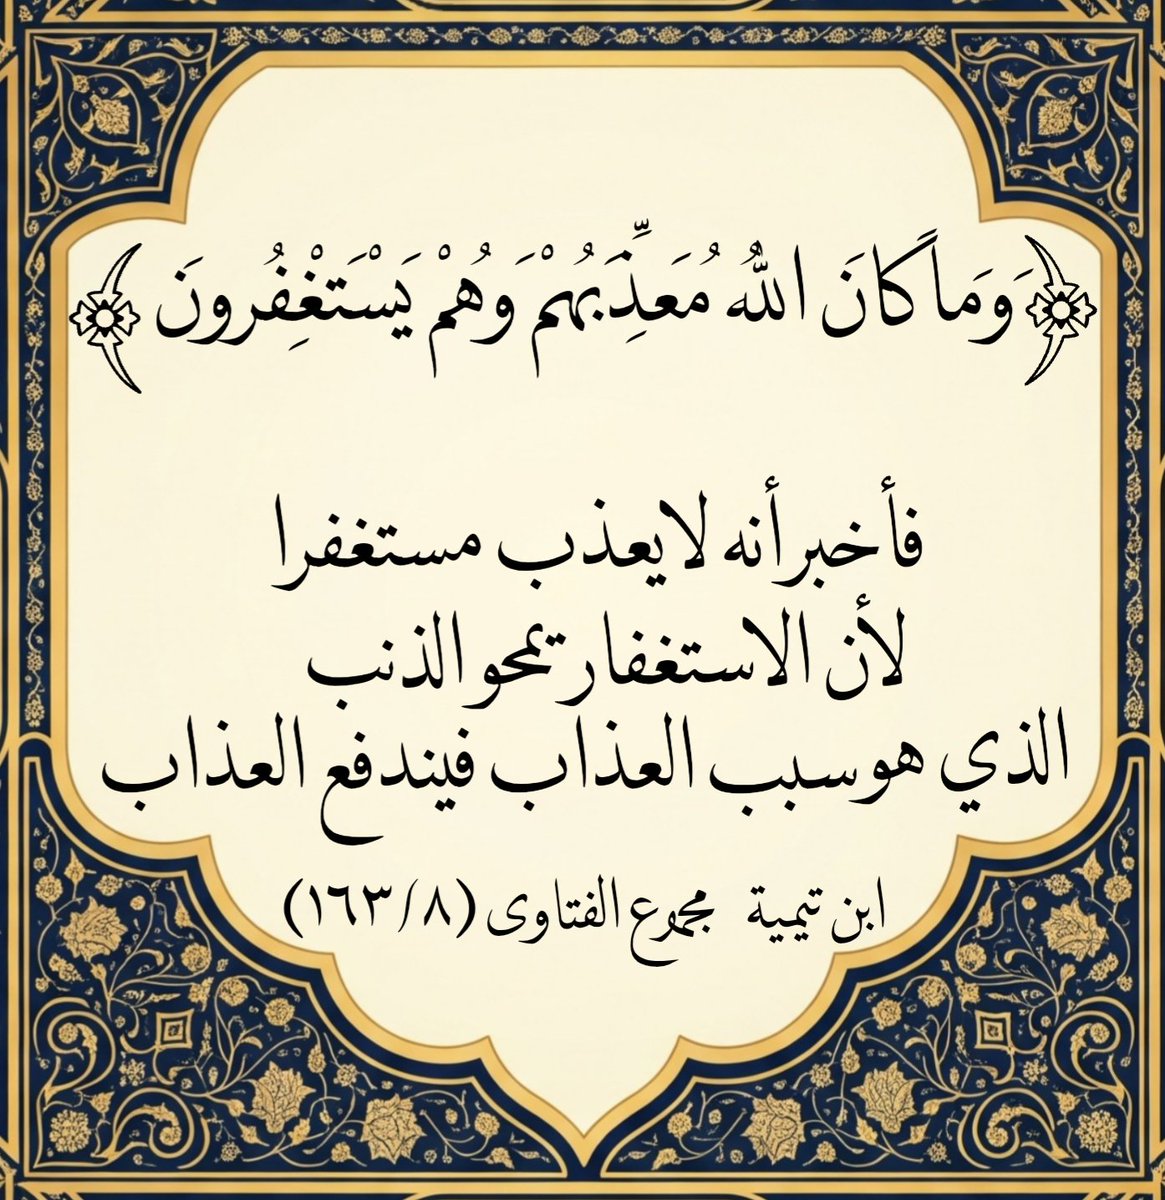 ﴿وَمَا كَانَ اللَّهُ مُعَذِّبَهُمْ وَهُمْ يَسْتَغْفِرُونَ﴾
فأخبر أنه لا يعذب مستغفرا
لأن الاستغفار يمحو الذنب
الذي هو سبب العذاب فيندفع العذاب
ابن تيمية مجموع الفتاوى (١٦٣/٨)